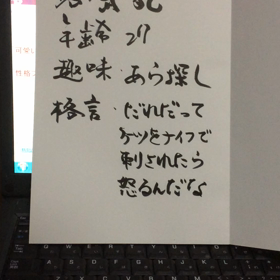 年齢 27
趣味・あら探し
格言・だれだって
ケツをナイフで
刺されたら
怒るんだな